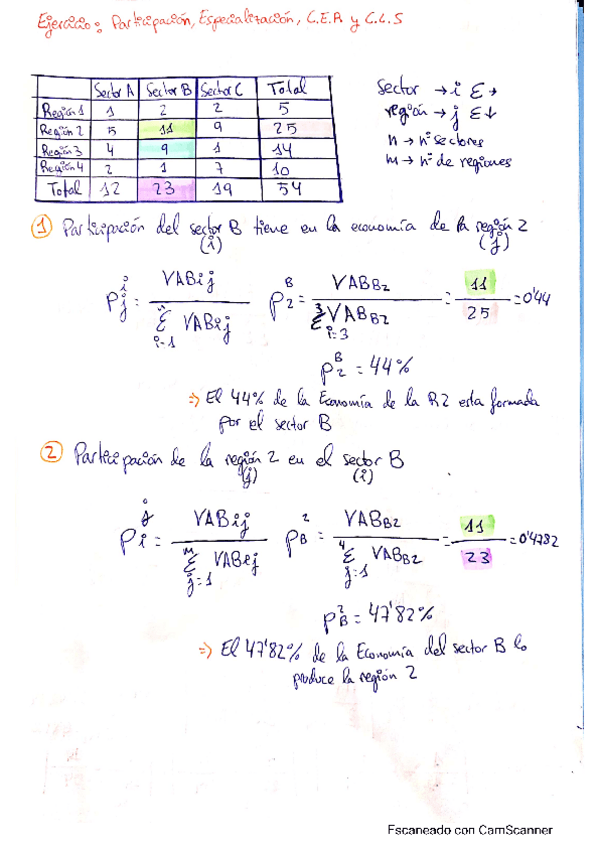 Ejercicio: Participación, Especialización, C.E.R y C.L.S
Sector A Sector B Sector C Total
Región 1 1 2 2 5
Región 2 5 11 9 25
Región 3 4 9 1 14
Región 4 2 1 7 10
Total 12 23 19 54
Sector → i Σ →
región → j Σ ↓
n → nº sectores
m → nº de regiones
① Participación del sector B tiene en la economía de la región 2
(i) (j)
P^i_j = VABij / Σ^n_{i=1} VABij P^B_2 = VAB_{B2} / Σ^3_{i=3} VAB_{B2} = 11 / 25 = 0'44
P^B_2 = 44%
⇒ El 44% de la Economía de la R2 esta formada
por el sector B
② Participación de la región 2 en el sector B
(j) (i)
P^j_i = VABij / Σ^m_{j=1} VABij P^2_B = VAB_{B2} / Σ^4_{j=1} VAB_{B2} = 11 / 23 = 0'4782
P^2_B = 47'82%
⇒ El 47'82% de la Economía del sector B lo
produce la región 2
Escaneado con CamScanner